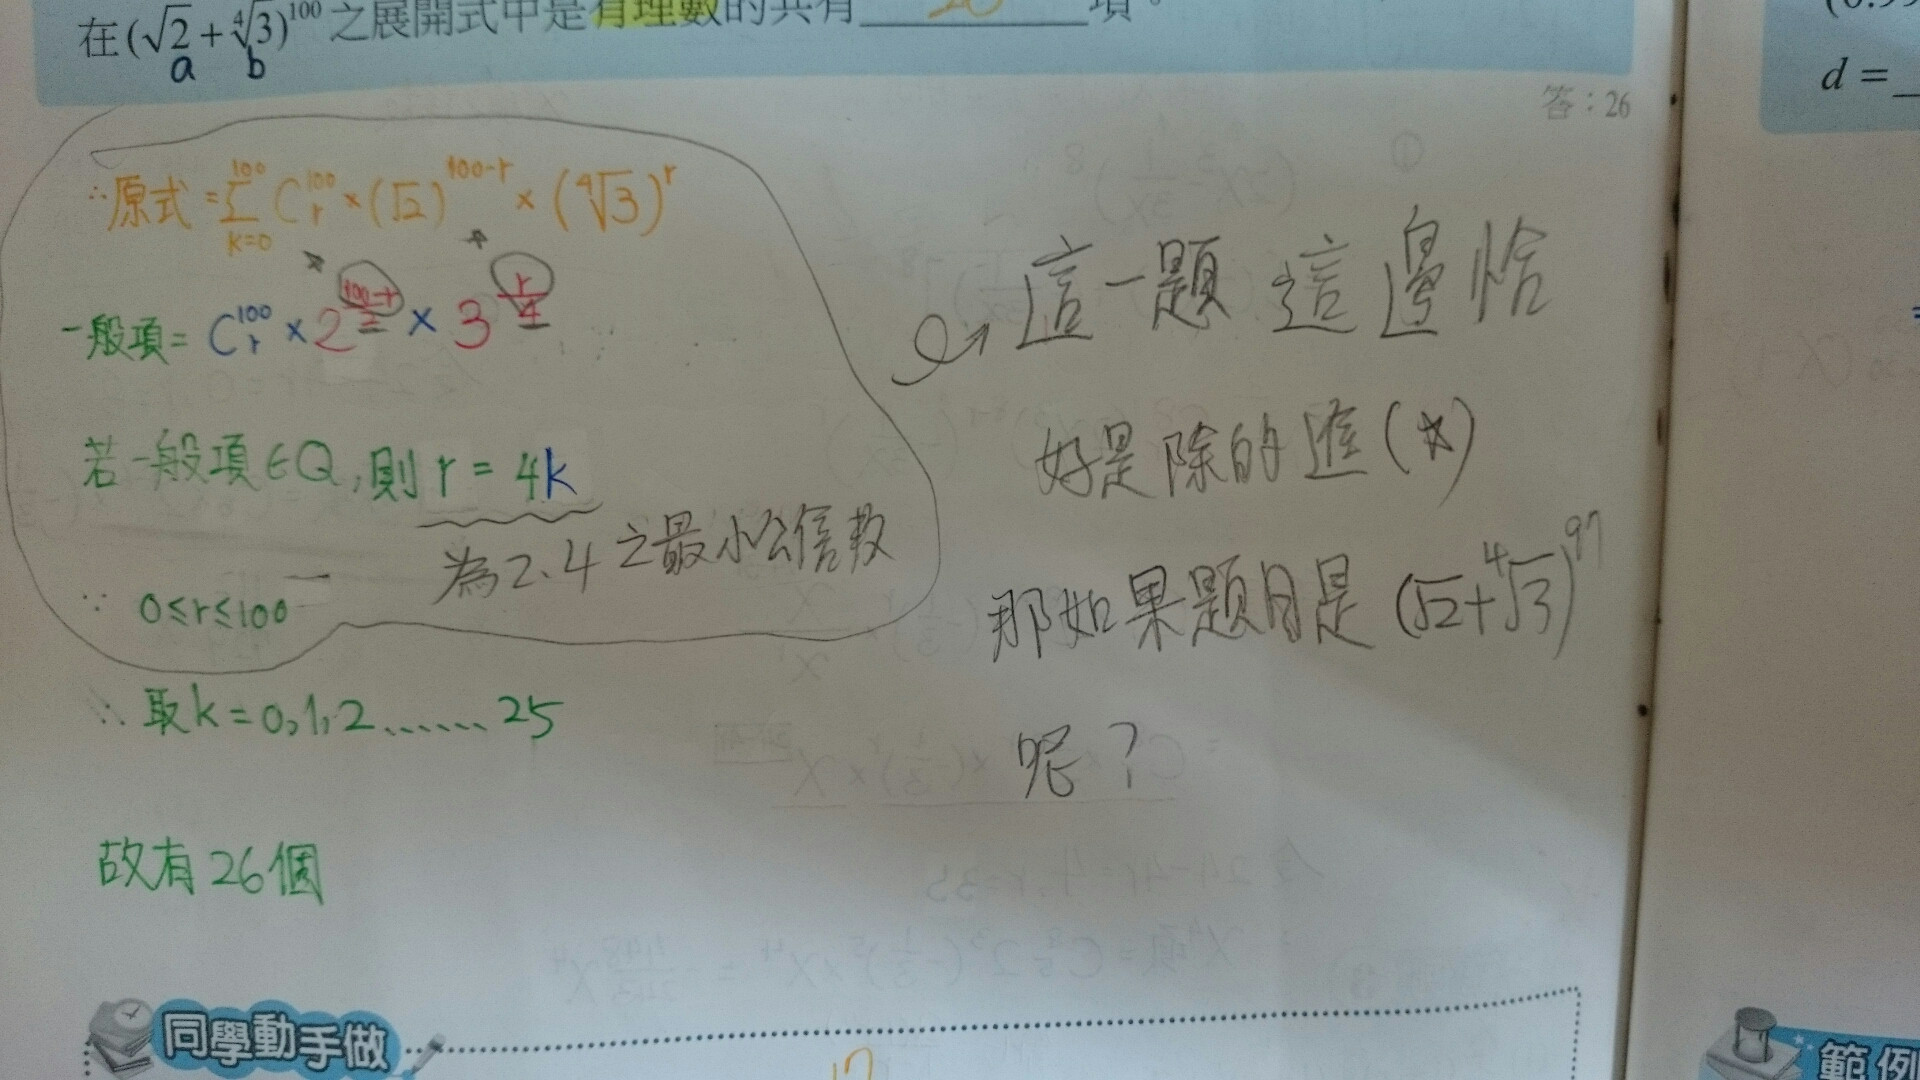 在(√2 + ⁴√3)¹⁰⁰ 之展開式中是有理數的共有 26 項。
a b
答：26
d =
∴原式 = Σ_{k=0}^{100} C_r^{100} × (√2)^{100-r} × (⁴√3)^r
一般項 = C_r^{100} × 2^{(100-r)/2} × 3^{r/4}
若一般項∈Q,則 r = 4k
為2、4之最小公倍數
∵ 0≤r≤100
∴ 取k=0,1,2......25
故有26個
這一題 這邊恰
好是除的進(*)
那如果題目是 (√2+⁴√3)⁹⁷
呢？
同學動手做
17
範例